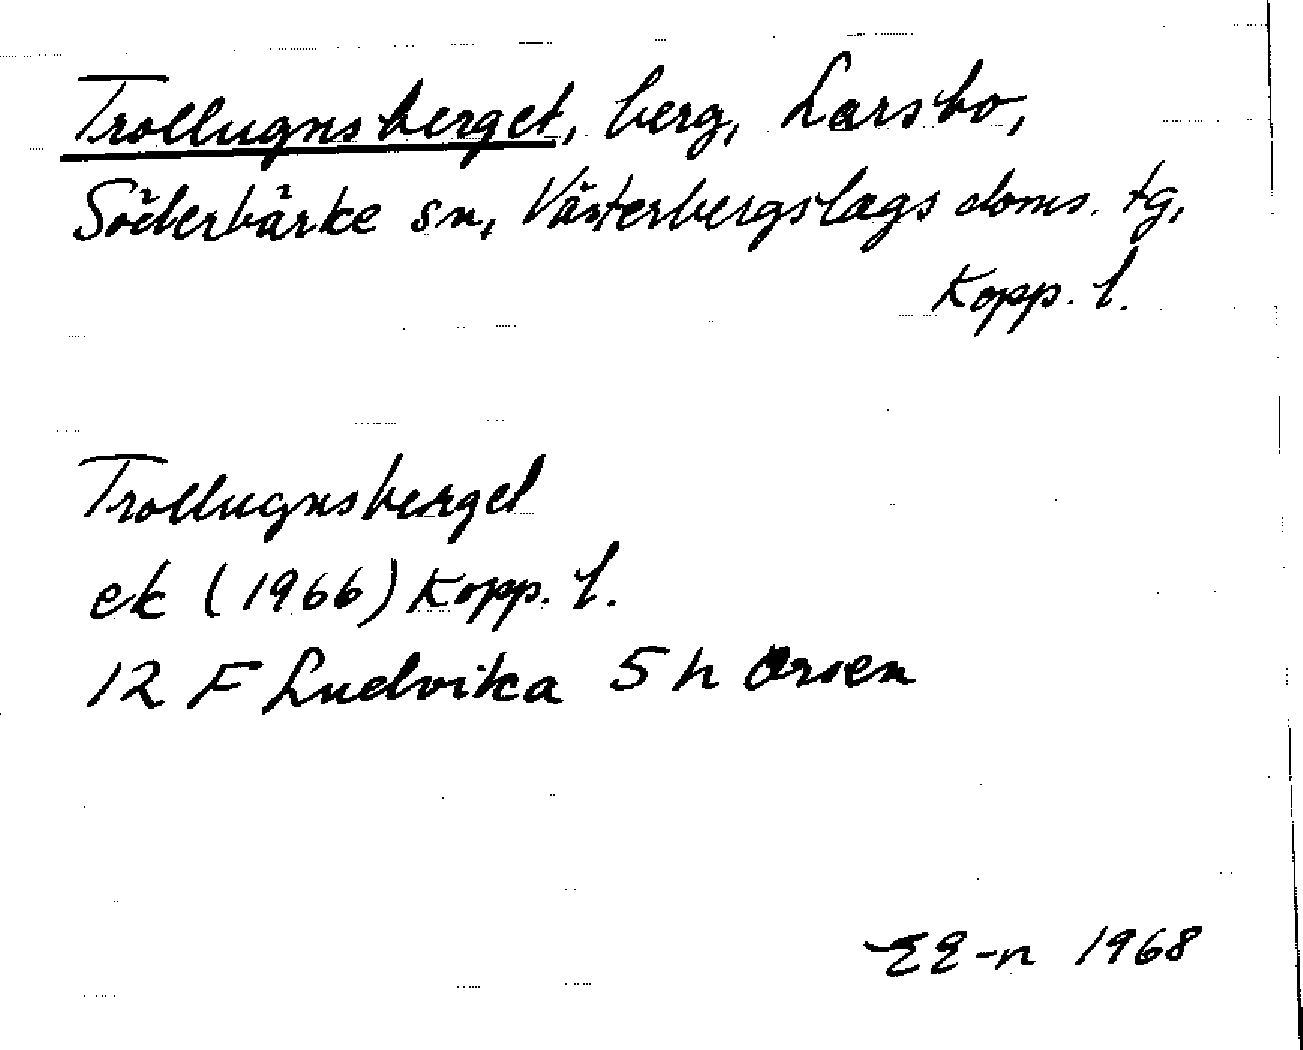 Trollugnsberget, berg, Larsbo,
Söderbärke sn, Västerbergslags doms. tg,
Kopp. l.
Trollugnsberget
ek (1966) Kopp. l.
12 F Ludvika 5 h Orsen
EE-n 1968